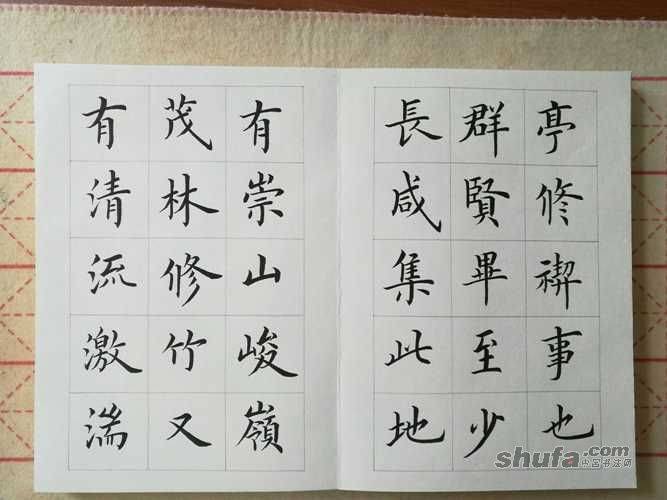 亭修禊事也
群賢畢至少
長咸集此地
有崇山峻嶺
茂林修竹又
有清流激湍
shufa.com
中国书法网